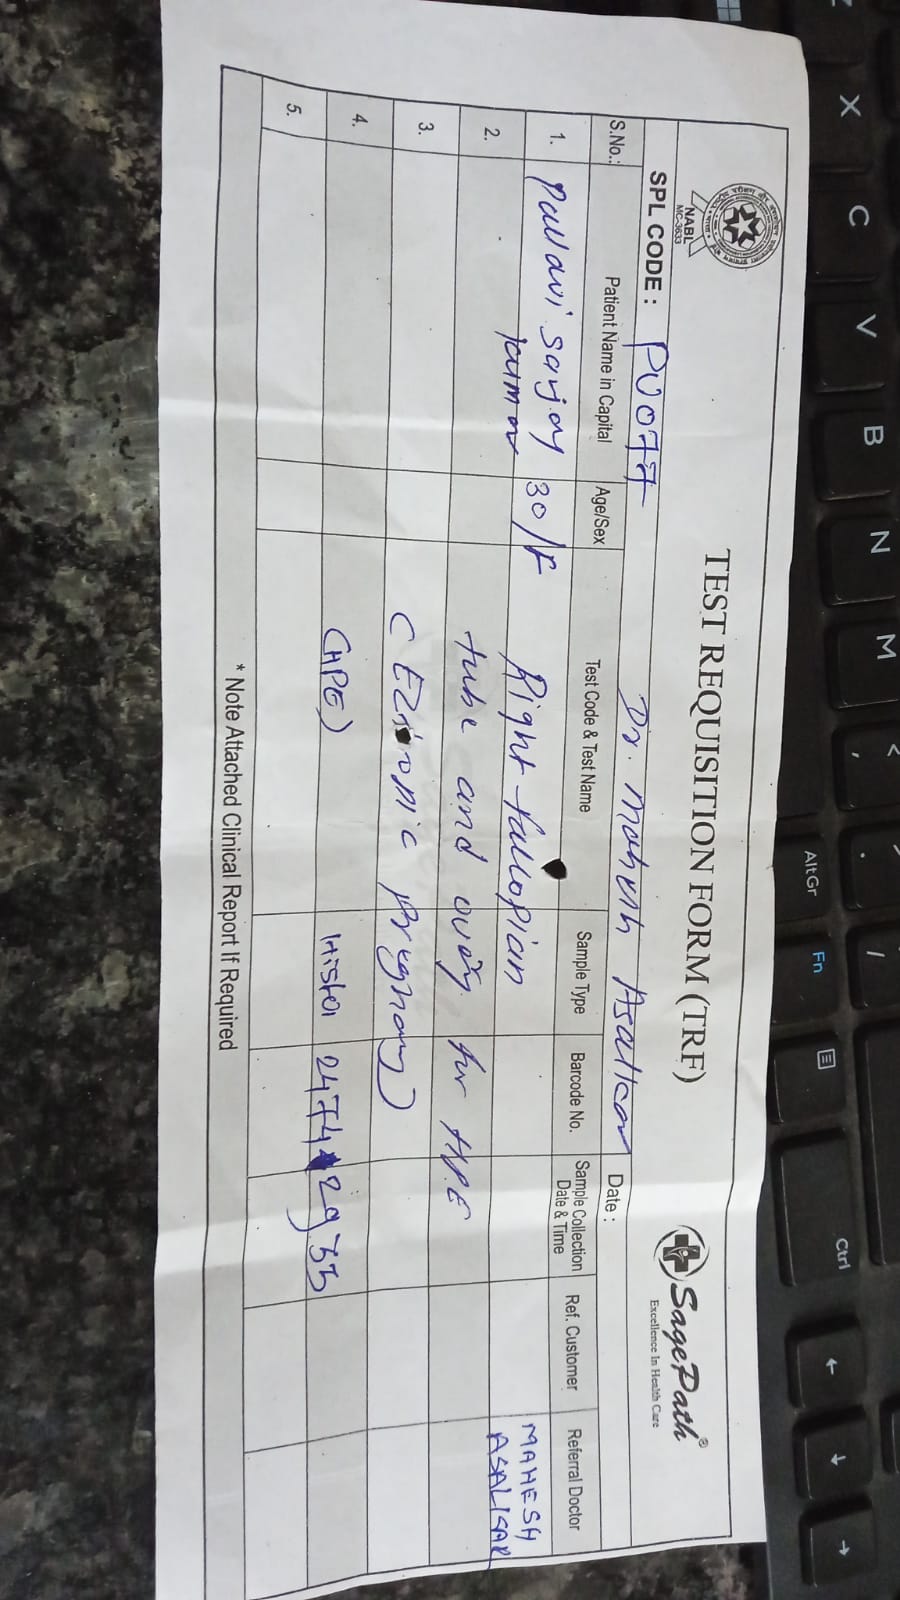 NABL
MC-3633
TEST REQUISITION FORM (TRF)
SagePath®
Excellence In Health Care
SPL CODE : PU077 Dr. Mahesh Asalkar Date :
S.No.: Patient Name in Capital Age/Sex Test Code & Test Name Sample Type Barcode No. Sample Collection Date & Time Ref. Customer Referral Doctor
1. Pallavi Sanjay 30/F Right fallopian MAHESH
ASALKAR
2. tube and ovary for HPE
3. (Ectopic pregnancy)
4. (HPE) Histo 2474 2933
5.
* Note Attached Clinical Report If Required
X
C
V
B
N
M
<
,
.
/
AltGr
Fn
Ctrl